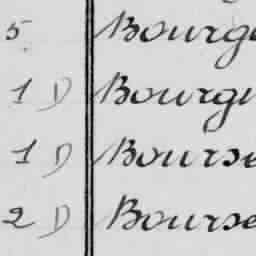 5 Bourg
1 D Bourgu
1 D Bourse
2 D Bourse